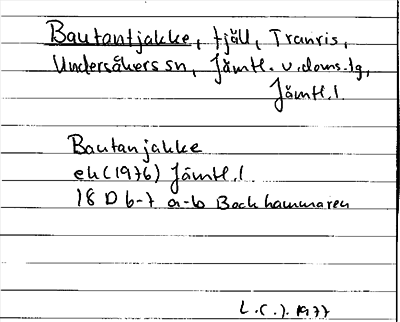 Bautantjakke, fjäll, Tranris,
Undersåkers sn, Jämtl. v. doms.lg,
Jämtl. l.
Bautanjakke
ek (1976) Jämtl. l
18 D 6-7 a-b Bockhammaren
L.C.J. 1977